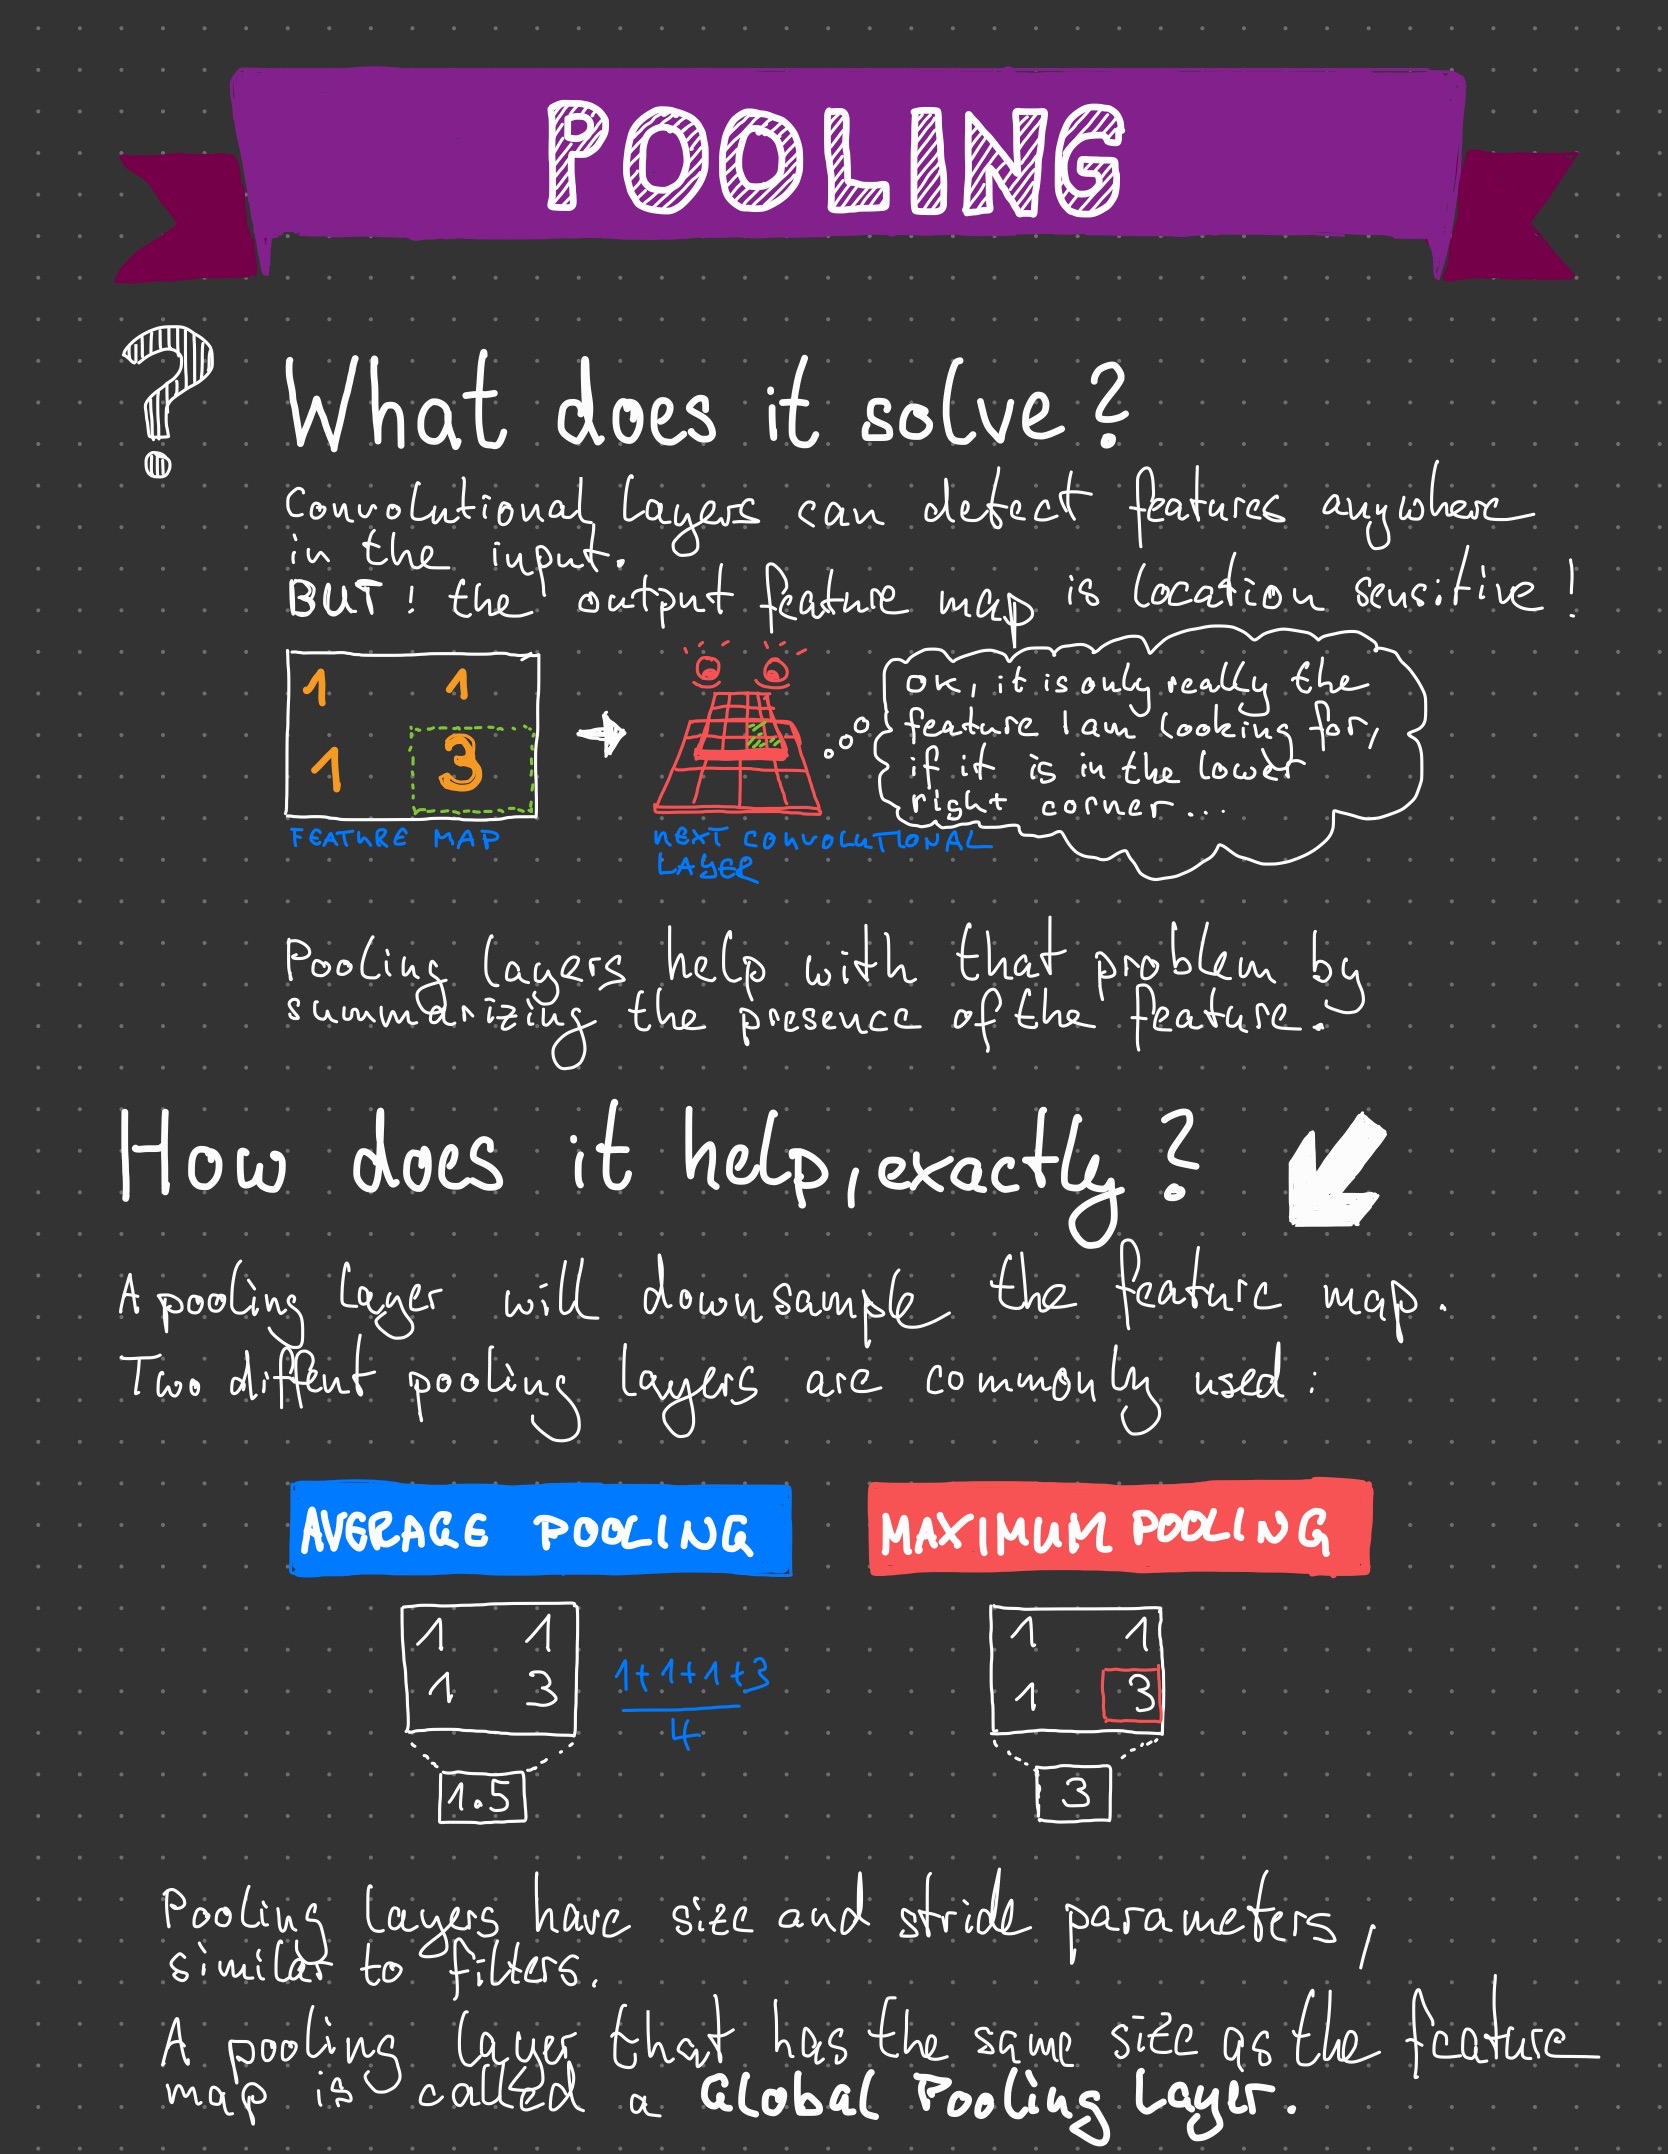 POOLING
? What does it solve?
Convolutional layers can detect features anywhere
in the input.
BUT! the output feature map is location sensitive!
1 1
1 3
FEATURE MAP
NEXT CONVOLUTIONAL
LAYER
OK, it is only really the
feature I am looking for,
if it is in the lower
right corner...
Pooling layers help with that problem by
summarizing the presence of the feature.
How does it help, exactly?
A pooling layer will downsample the feature map.
Two diffent pooling layers are commonly used:
AVERAGE POOLING
1 1
1 3
1+1+1+3
4
1.5
MAXIMUM POOLING
1 1
1 3
3
Pooling layers have size and stride parameters,
similar to filters.
A pooling layer that has the same size as the feature
map is called a Global Pooling Layer.